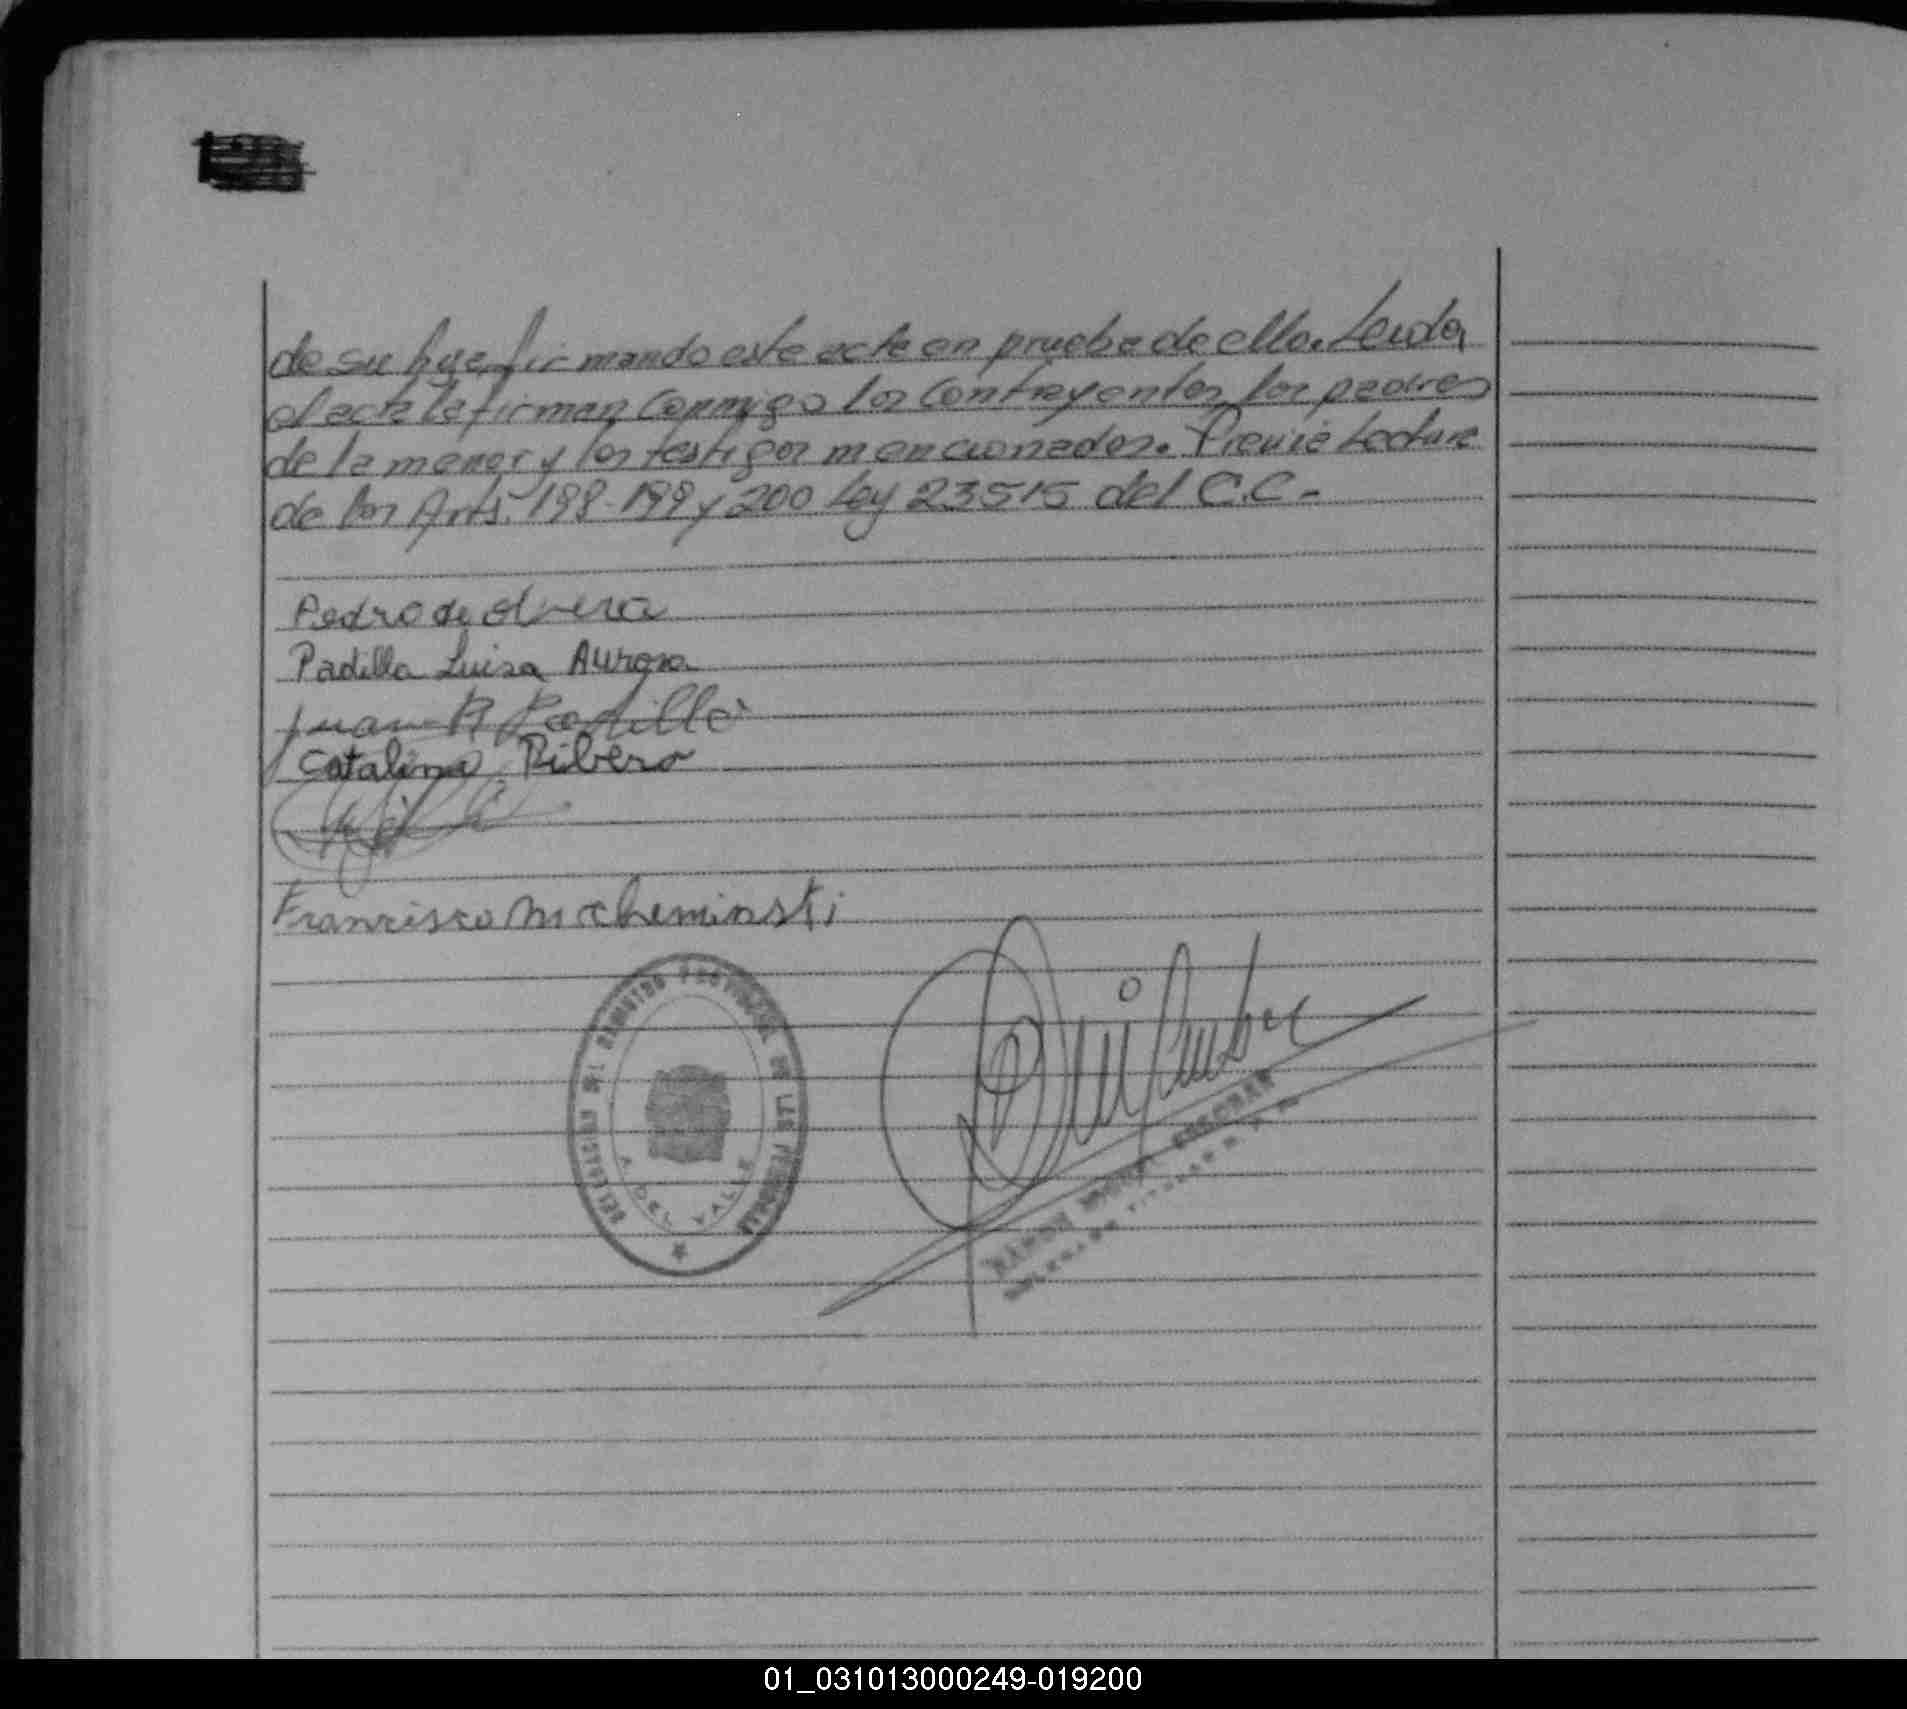 de su hija, firmando este acta en prueba de ello. Leida
el acta la firman conmigo los contrayentes, los padres
de la menor y los testigos mencionados. Previa Lectura
de los Arts. 198-199 y 200 Ley 23515 del C.C.-
Pedro de Olivera
Padilla Luisa Aurora
Juan R Padilla
Catalina Ribero
Francisco M Cheminski
DELEGACION DEL REGISTRO PROVINCIAL DE LAS PERSONAS
A. DEL VALLE
RAMON ESCOBAR
DELEGADO TITULAR
01_031013000249-019200